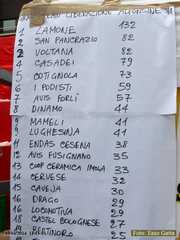 1 LAMONE 132
2 SAN PANCRAZIO 82
2 VOLTANA 82
4 CASADEI 79
5 COTIGNOLA 73
6 I PODISTI 59
7 AVIS FORLÌ 57
8 DINAMO 44
9 MAMELI 41
9 LUGHESINA 41
11 ENDAS CESENA 38
12 AVIS FUSIGNANO 35
13 COOP CERAMICA IMOLA 33
14 CERVESE 32
15 CAVEJA 30
16 DRAGO 29
16 LOCOMOTIVA 29
18 CASTEL BOLOGNESE 27
19 BERTINORO
Foto: Enzo Gaita